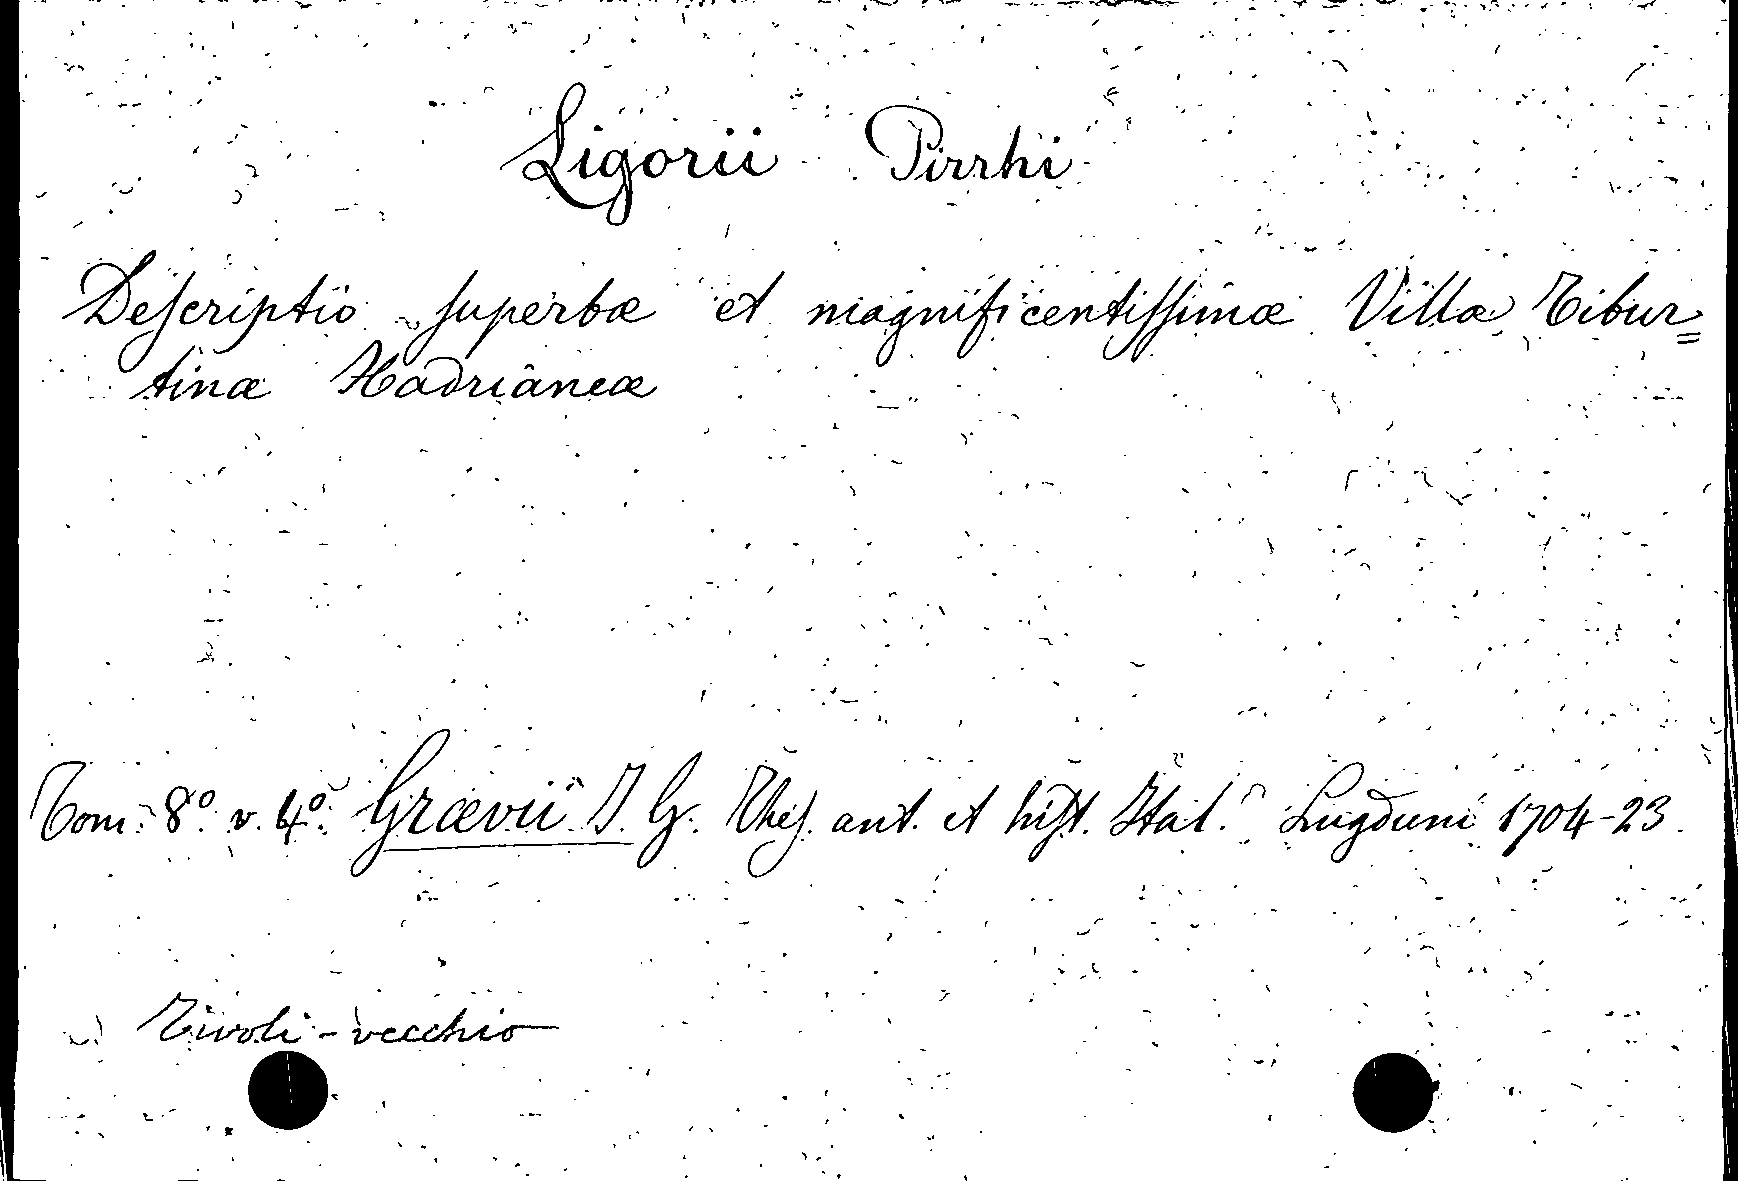 Ligorii Pirrhi
Deſcriptio ſuperbæ et magnificentiſſimæ Villæ Tibur=
tinæ Hadrianeæ
Tom. 8º. v. 4º. Grævii J. G. Theſ. ant. et hiſt. Ital. Lugduni 1704-23.
Tivoli-vecchio